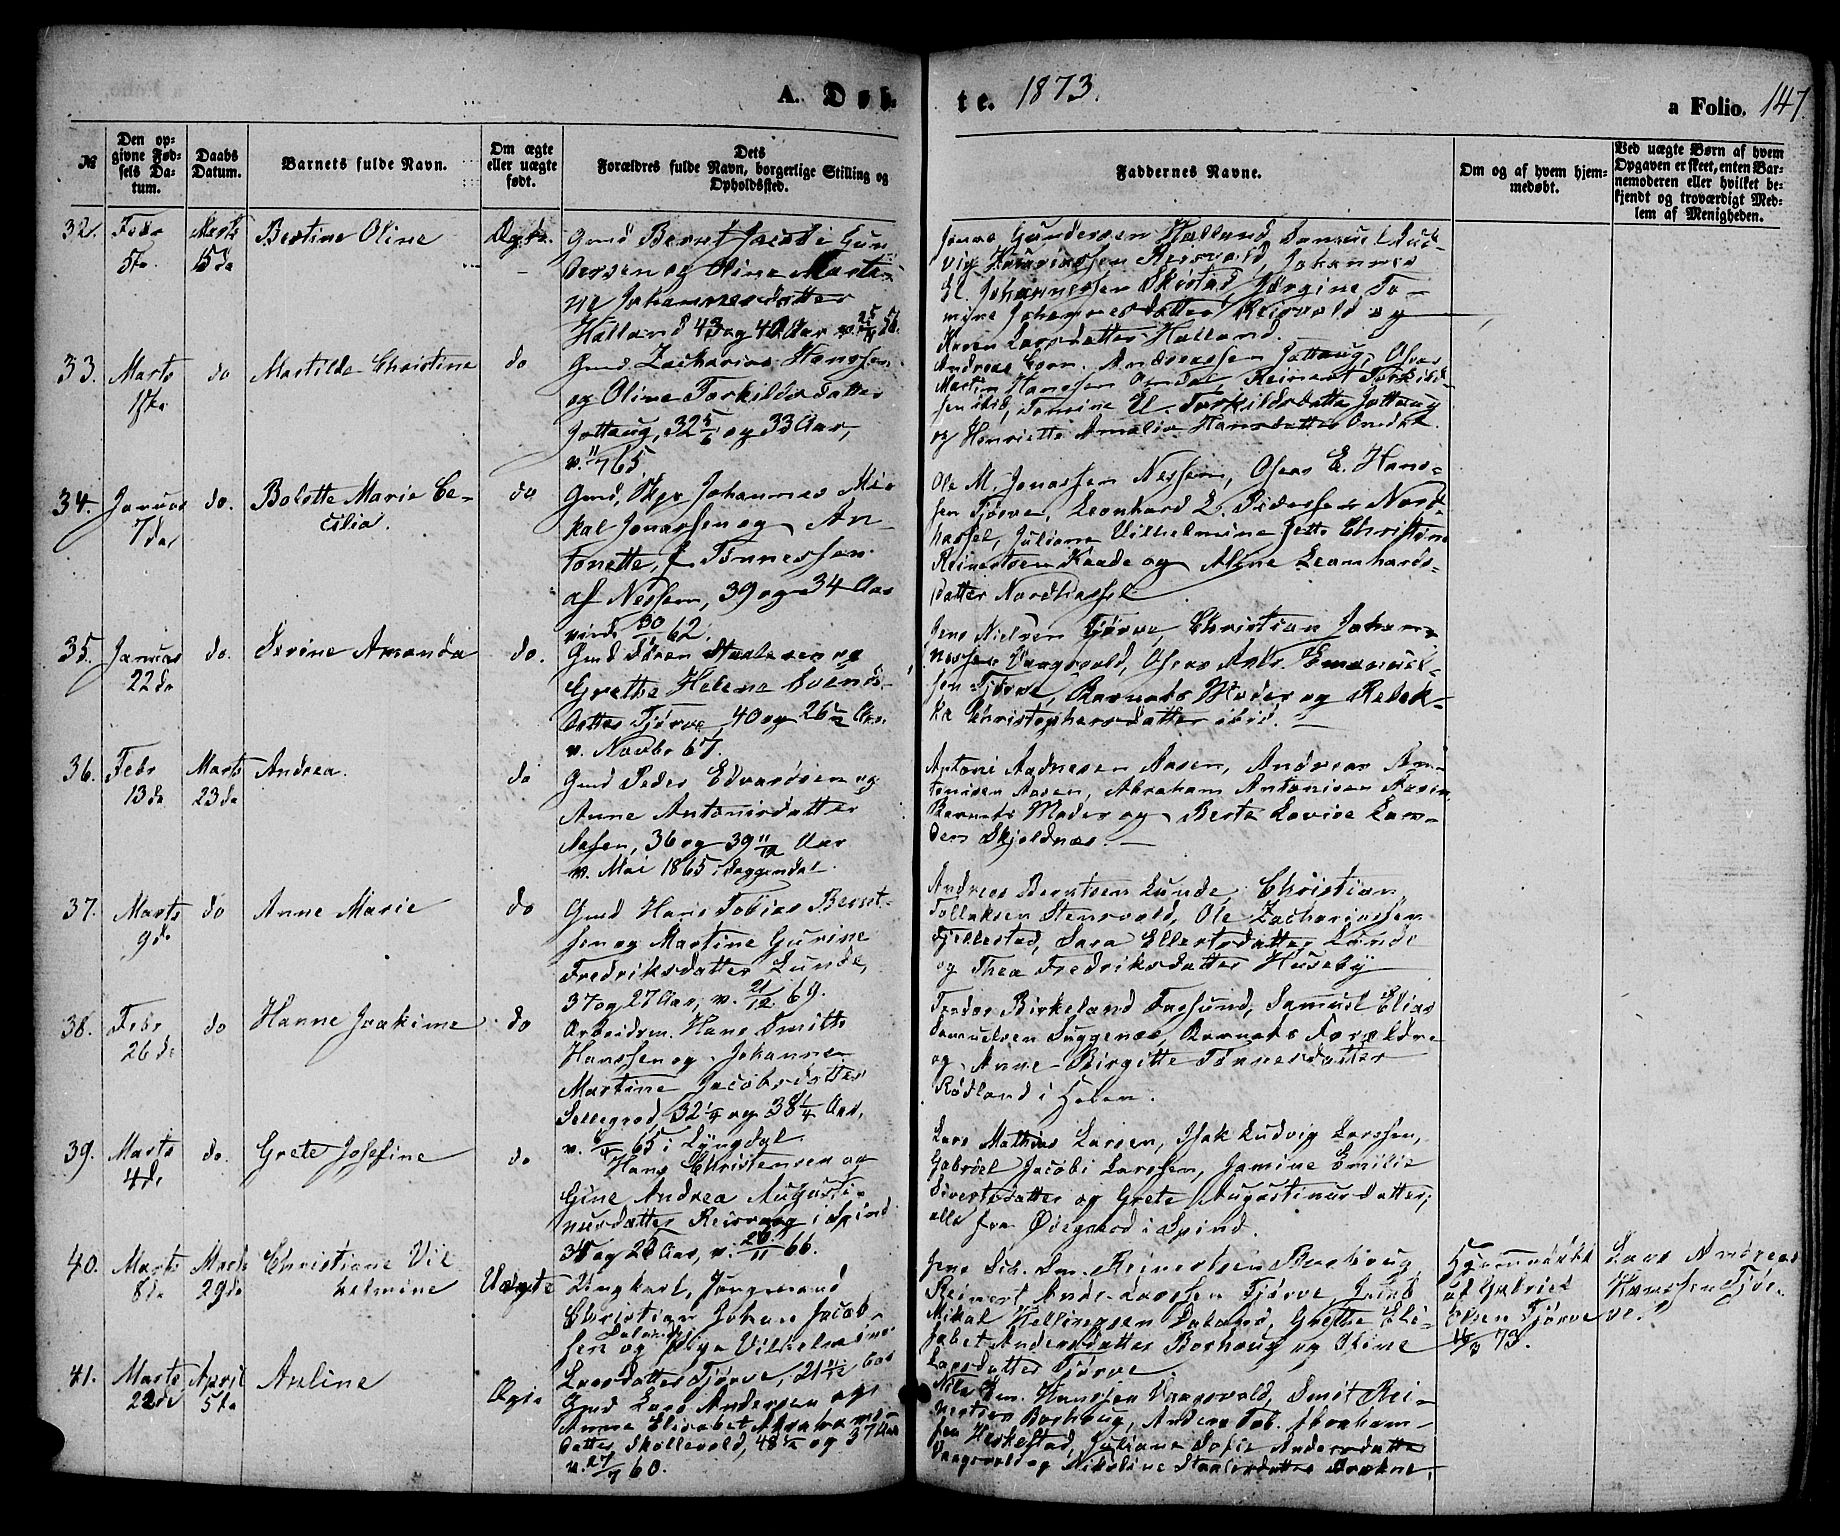 A. Døb-
te. 1873.
a Folio. 147
№
Den op-
givne Fød-
sels Da-
tum.
Daabs
Datum.
Barnets fulde Navn.
Om ægte
eller uægte
født.
Dets
Forældres fulde Navn, borgerlige Stilling og
Opholdssted.
Faddernes Navne.
Om og af hvem hjem-
medøbt.
Ved uægte Børn af hvem
Opgaven er skeet, enten Bar-
nemoderen eller hvilket be-
kjendt og troværdigt Med-
lem af Menigheden.
32. Febr 5te
Marts 15de
Bertine Oline
Ægte.
Gmd Bernt Jacobi Gun
dersen og Oline Marti-
ne Johannesdatter
Halland 43 og 40 Aar
Jonas Gundersen Halland, Samuel Lud-
vig Reisvold, Johannes
El. Johannessen Skistad, Jørgine To-
mine Johannesdatter Reisvold og
Karen Larsdatter Halland.
33. Marts 1ste
do
Mathilde Christine
do
Gmd. Zacharias Hanssen
og Oline Torkildsdatter
Jøttaug, 32 5/6 og 33 Aar,
v. 11/7 65
Andreas Corn. Andreassen Jøttaug, Osvas
Martin Hanssen Omdal, Reinert Torkild-
sen ibid, Tomine E. Torkildsdatter Jøttaug
og Henriette Amalie Hansdatter Omdal.
34. Januar 7de
do.
Bolette Marie Ce-
cilia.
do
Gmd, Skpr Johannes Mi-
kal Jonassen og An-
tonette, f. Tønnessen
af Nessem, 39 og 34 Aar
viede 30/ 62.
Ole M. Jonassen Nessem, Oseas E. Hans-
sen Tjørve, Leonhard L. Pedersen Nord-
hassel, Juliane Vilhelmine Jette Christine
Reinertsen Kaade og Aline Leonhards-
datter Nordhassel
35. Januar 22de
do.
Serine Amanda
do.
Gmd Søren Staalesen og
Grethe Helene Svends-
datter Tjørve, 40 og 26 ½ Aar.
v. Novbr 67.
Jens Nielsen Tjørve, Christian Johan-
nessen Vaagsvold, Oseas Andr. Emanuel-
sen Tjørve, Barnets Moder og Rebek-
ka Christophersdatter ibid.
36. Febr 13de
Marts 23de
Andrea.
do
Gmd Peder Edvardsen og
Anne Antonisdatter
Aasen, 36 og 39 11/12 Aar
v. Mai 1865 i Baggendal.
Antoni Aadnesen Aasen, Andreas An-
tonisen Aasen, Abraham Antonisen Aasen,
Barnets Moder og Berte Lovise Lam-
ders Skjoldnæs.
37. Marts 9de
do
Anne Marie
do
Gmd Hans Tobias Bernt-
sen og Martine Gurine
Fredriksdatter Lunde,
37 og 27 Aar, v. 21/12 69.
Andreas Berntsen Lunde, Christian
Tollaksen Stensvold, Ole Zachariassen
Fjellestad, Sara Ellertsdatter Lunde
og Thea Fredriksdatter Huseby
38. Febr 26de
do
Hanne Joakime
do
Arbeidsm. Hans Smith
Hanssen og Johanne
Martine Jacobsdatter
Sellegrod, 32 ¼ og 38 ¼ Aar,
v. 65 i Lyngdal
Teodor Birkeland Farsund, Samuel Elias
Samuelsen Luggenæs, Barnets Forældre
og Anne Birgitte Tønnesdatter
Rødland i Heben.
39. Marts 4de
do.
Grete Josefine
do
Hans Christensen og
Gine Andrea Augusti-
nusdatter Reisvaag i Spind
Aar, v. 20/11 66.
Lars Mathias Larsen, Isak Ludvig Larssen,
Gabriel Jacobi Larssen, Jamine Emilie
Sivertsdatter og Grete Augustinusdatter,
alle fra Ødegaard i Spind.
40. Marts 8de
Marts 29de
Christiane Vil-
helmine
Uægte
Ungkarl, Jungmand
Christian Johan Jacob-
sen og Pige Vilhelmine
Larsdatter Tjørve,
Reinertsen Borhoug,
Reinert Andr. Larssen Tjørve, Jacob
Mikal Hellinesen Dalaned, Grethe Eli-
sabet Andersdatter Borhoug og Stine
Larsdatter Tjørve
Hjemmedøbt
af Gabriel
Olsen Tjørve
16/3 73.
Lars Andreas
Hanssen Tjør-
ve.
41. Marts 22de
April 5te
Auline
Ægte
Gmd Lars Andersen og
Anne Elisabet Abrahams-
datter, Skollevold, 48 ½ og 37 Aar
v. 27/7 60.
Nils Em. Hanssen Vaagsvold, Smit Rei-
nertsen Borhoug, Anders Tob. Abraham-
sen Herkestad, Juliane Sofie Andersdatter
Vaagsvold og Nikoline Staalesdatter